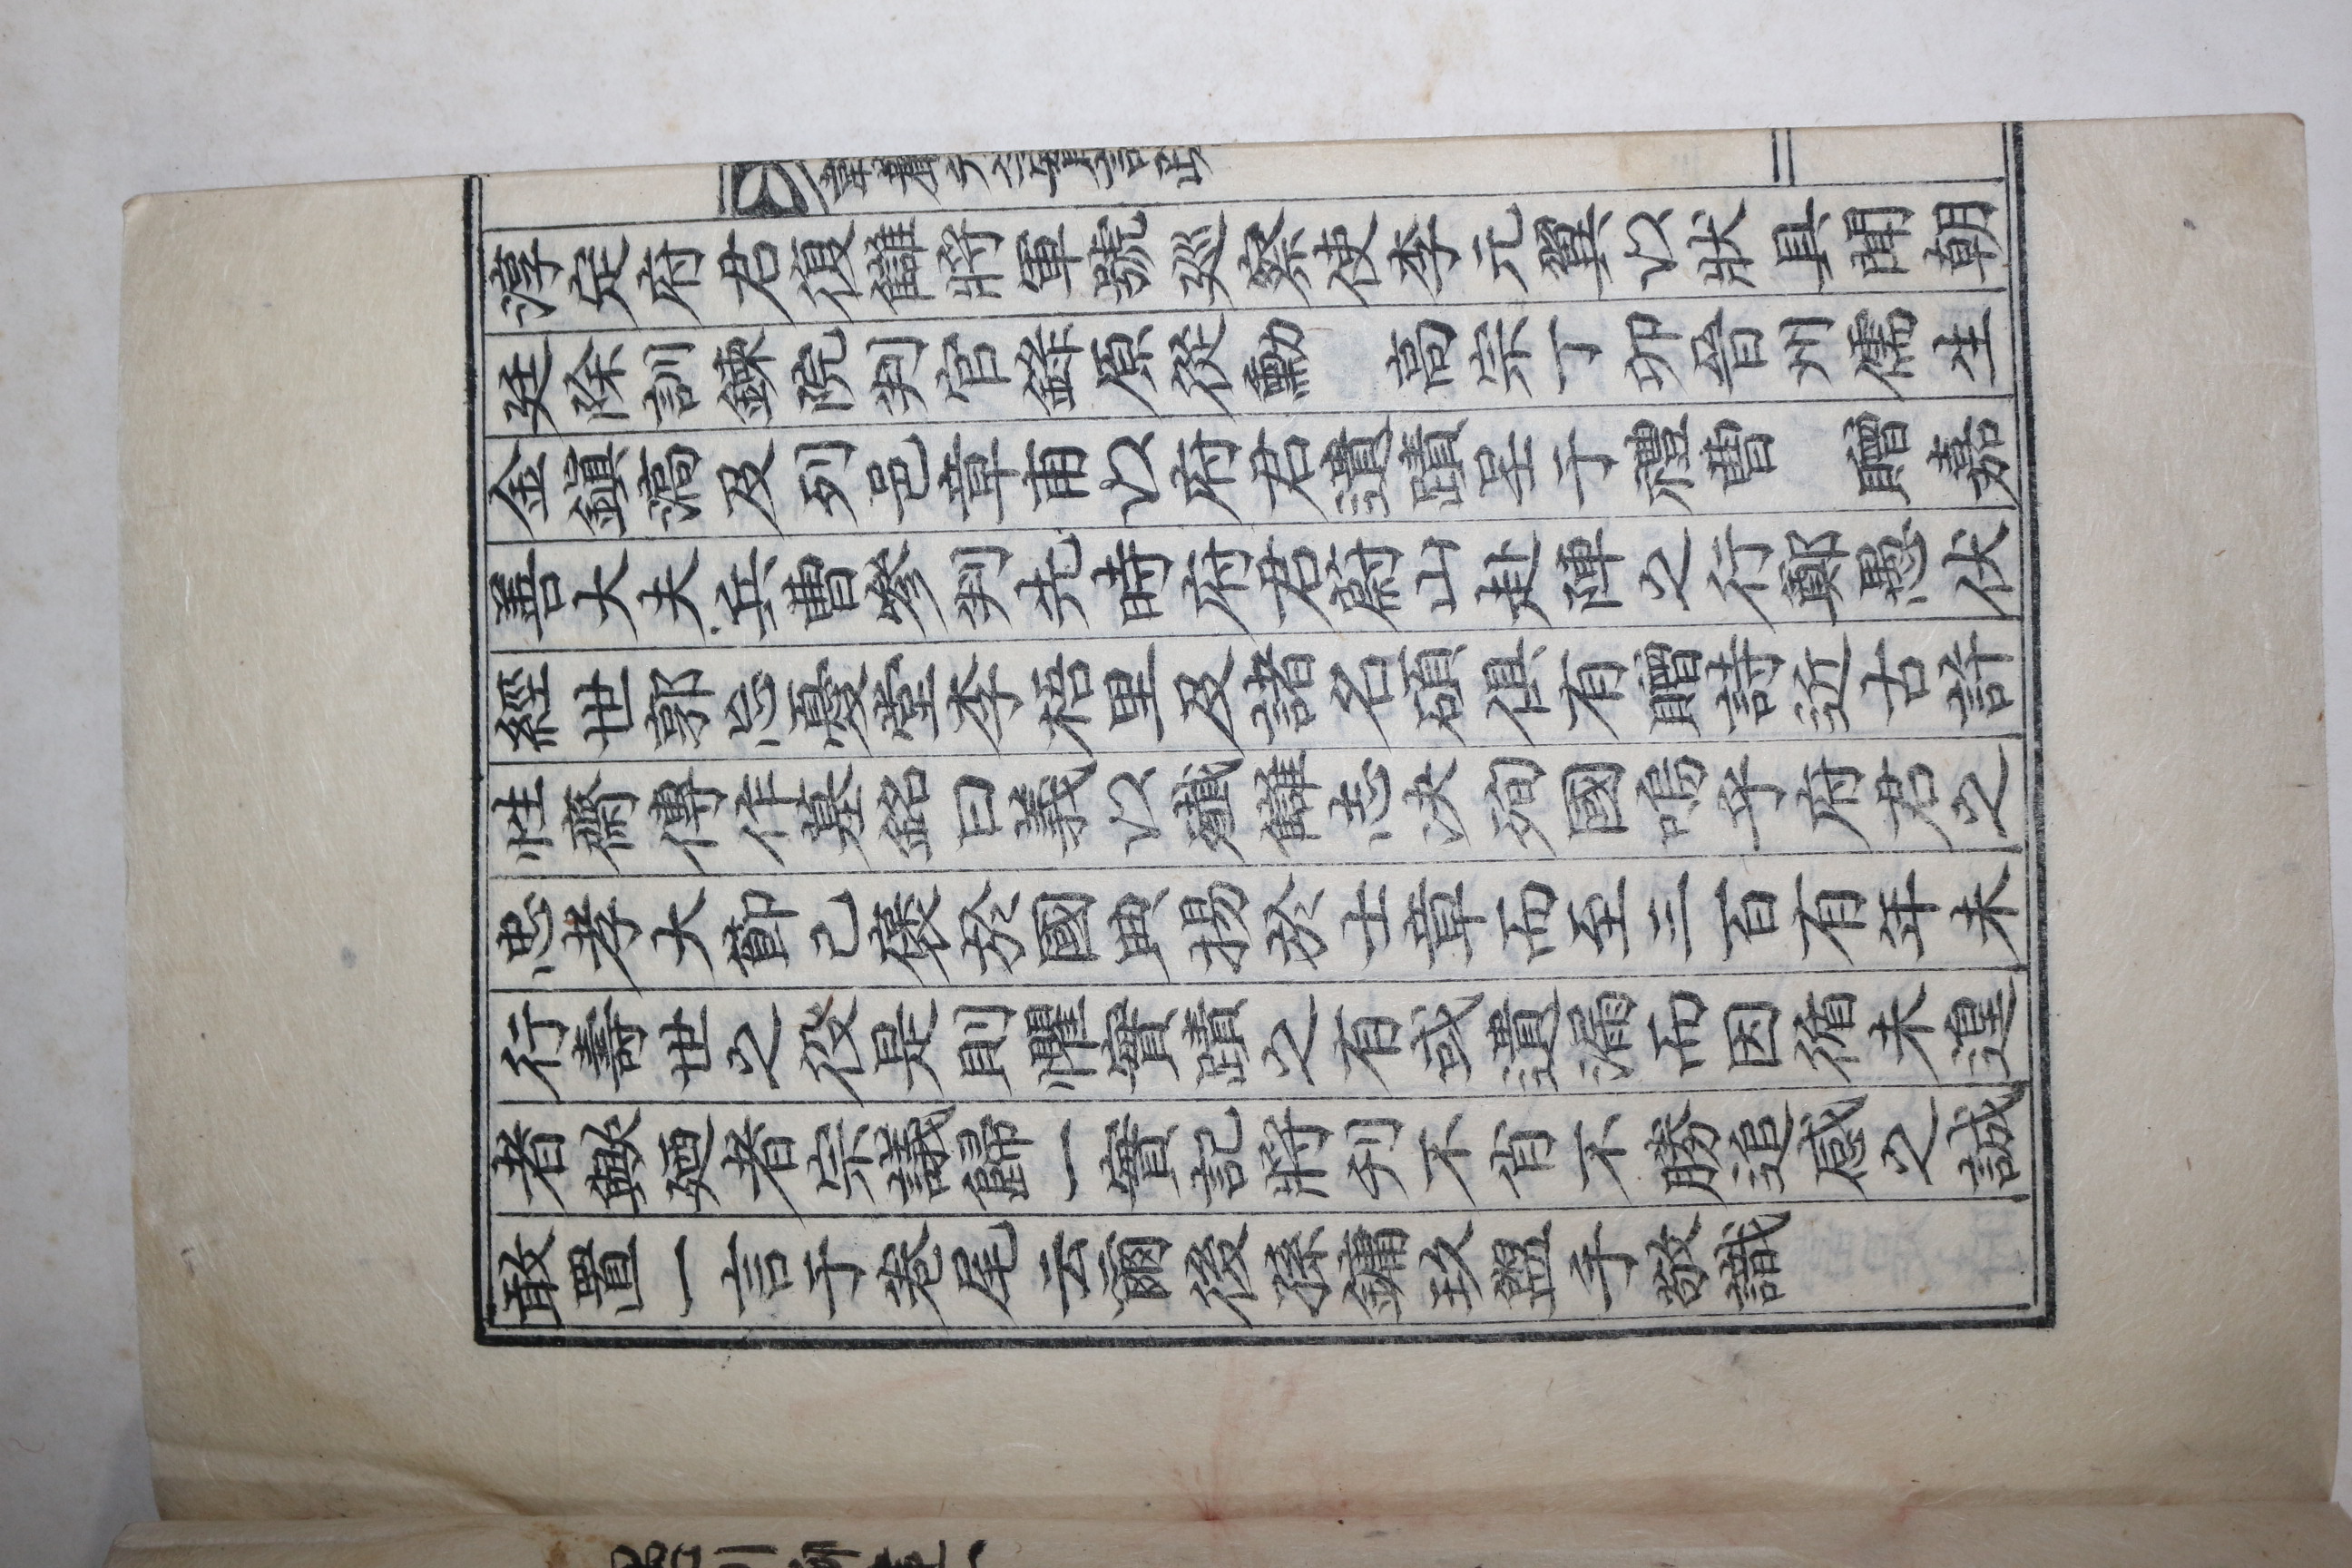 淳定府君復讎將軍號廵察使李元翼以狀具聞朝
廷除訓鍊院判官錄原從勳 高宗丁卯晉州儒生
金鎭滈及列邑章甫以府君遺蹟呈于禮曹 贈嘉
善大夫兵曹叅判先時府君蔚山赴陣之行鄭愚伏
經世郭忘憂堂李梧里及諸名碩俱有贈詩近古許
性齋傳作墓銘曰義以殲讎志决殉國嗚乎府君之
忠孝大節己褒於國典揚於士章而至三百有年未
行壽世之役是則懼實蹟之有或遺漏而因循未遑
者歟廼者宗議歸一實記將刊不肖不勝追感之誠
敢置一言于卷尾云爾後孫鏞玖盥手敬識